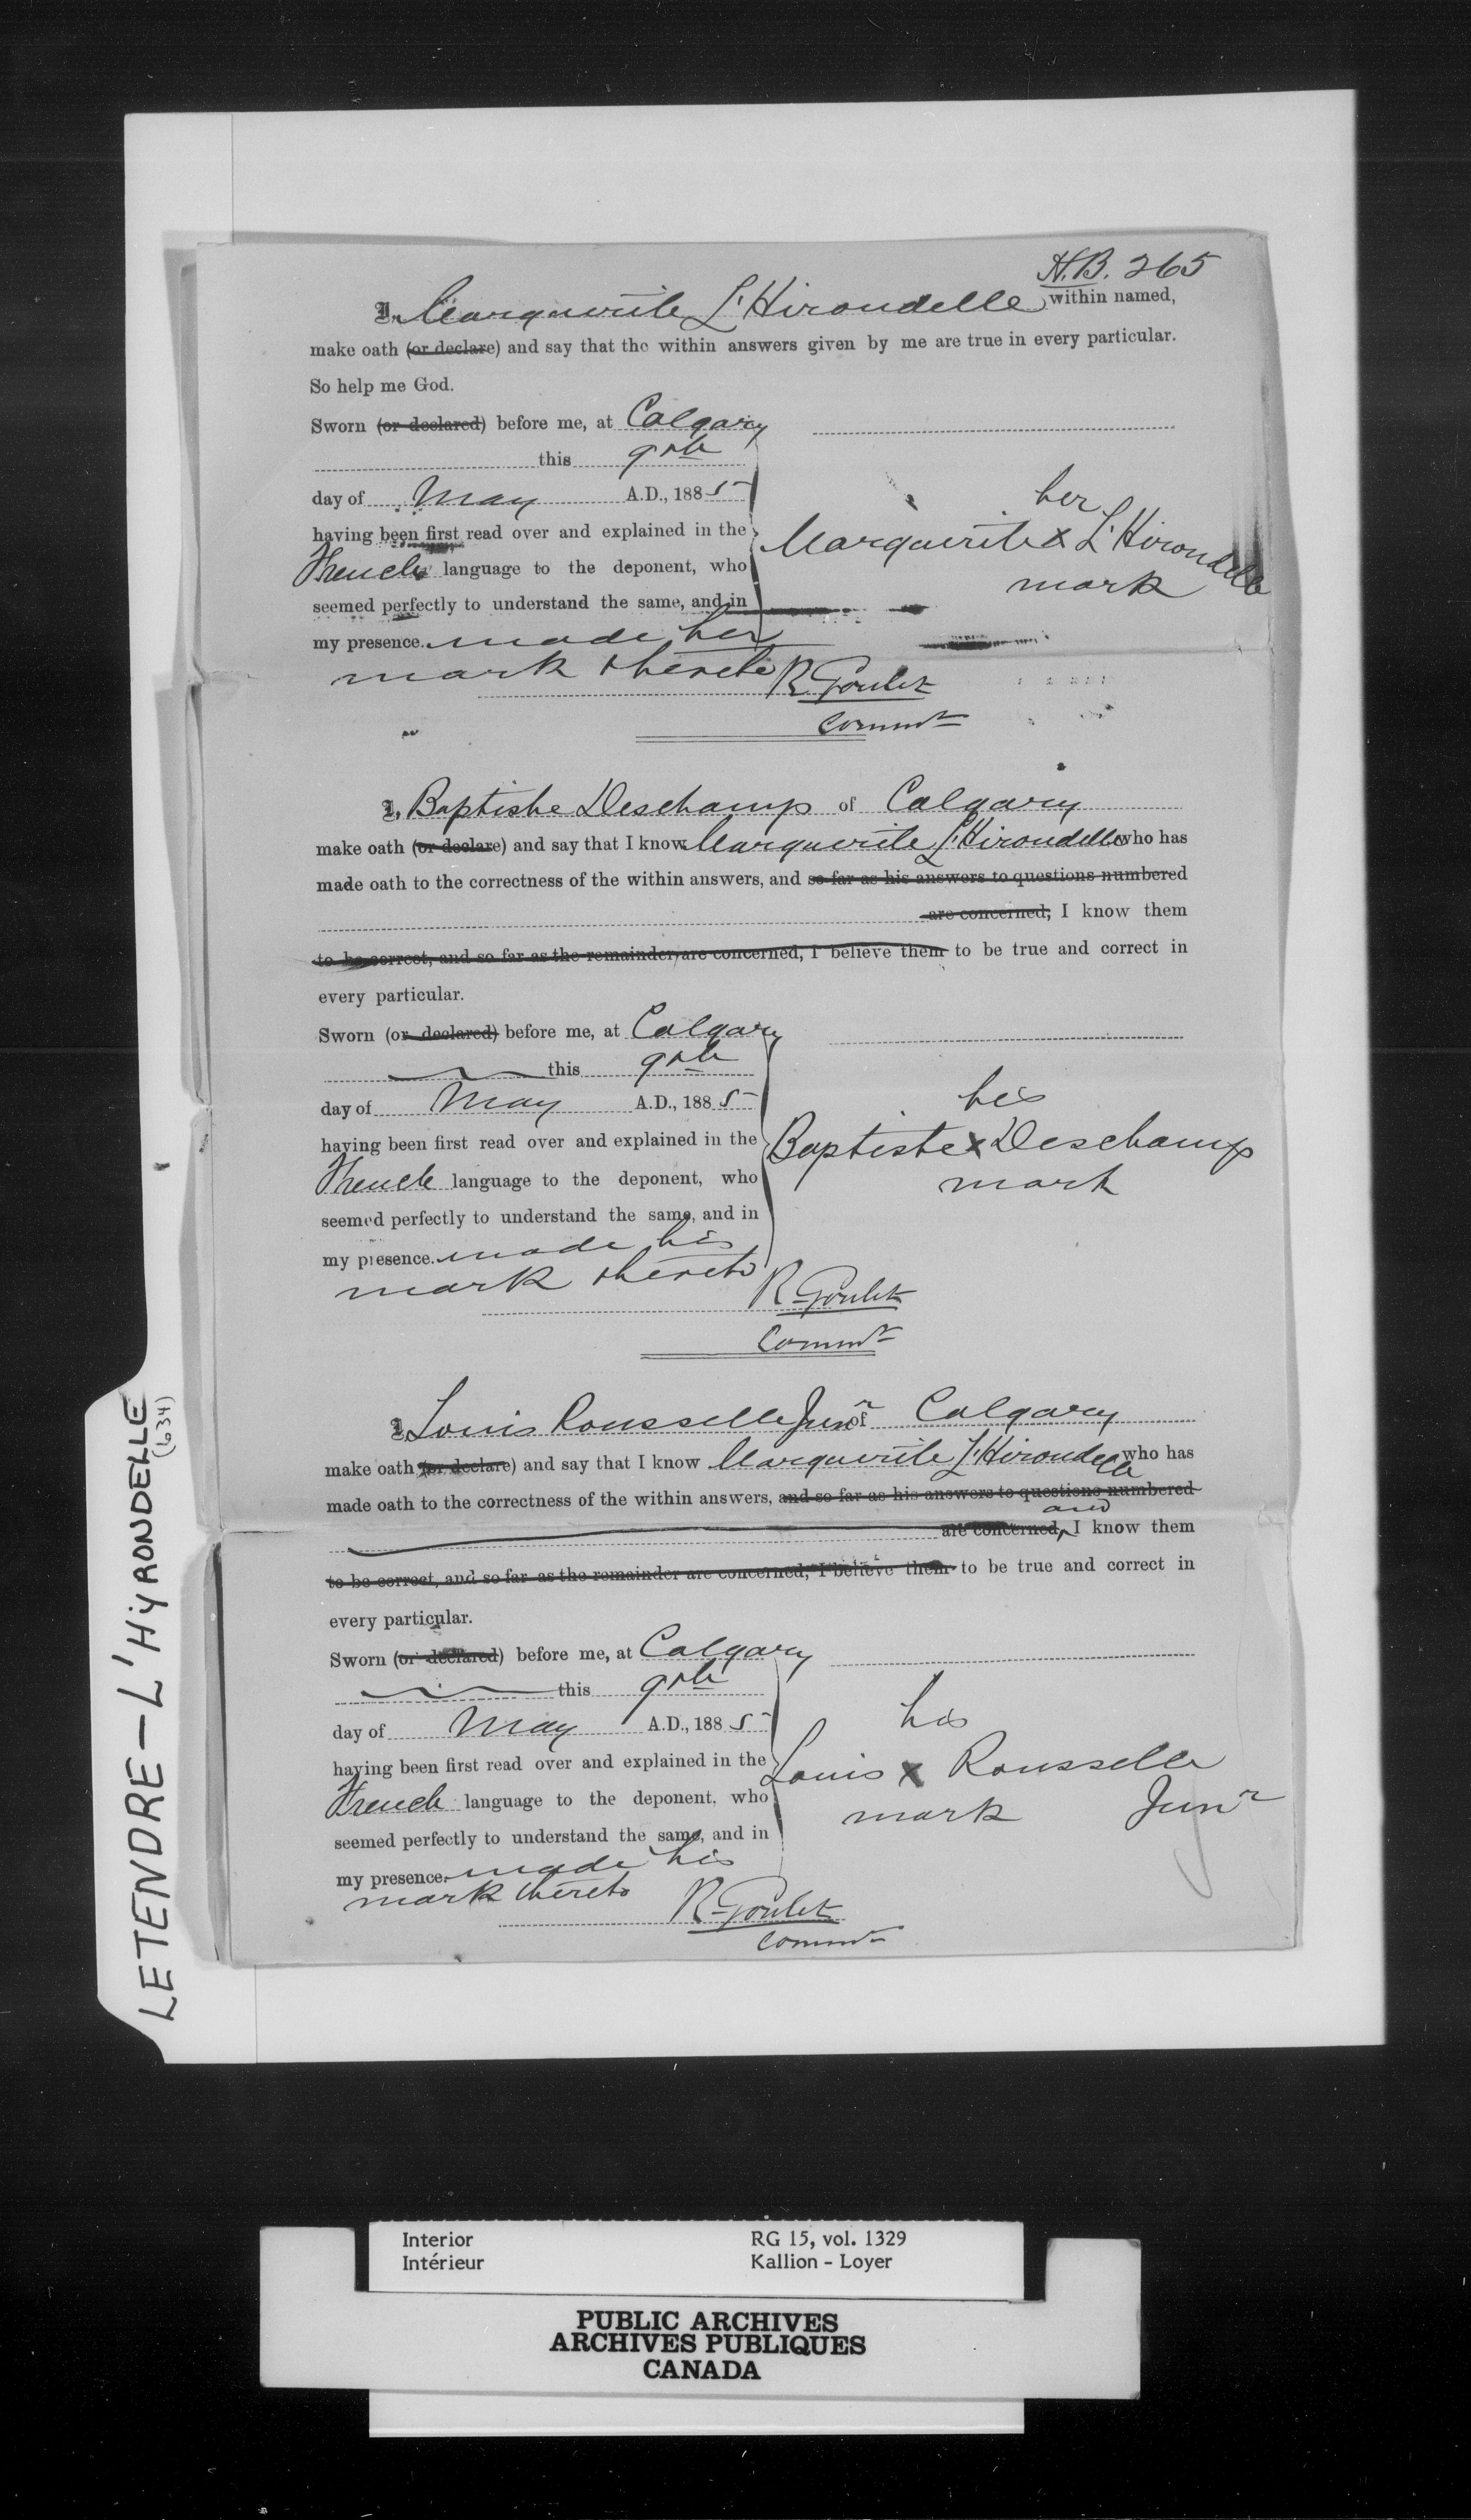 H.B. 265
I, Marguerite L'Hirondelle within named,
make oath (or declare) and say that the within answers given by me are true in every particular.
So help me God.
Sworn (or declared) before me, at Calgary
this 9th
day of May A.D., 1885
having been first read over and explained in the
French language to the deponent, who
seemed perfectly to understand the same, and in
my presence made her
mark thereto
her
Marguerite x L'Hirondelle
mark
R Goulet
Commr
I, Baptiste Deschamp of Calgary
make oath (or declare) and say that I know Marguerite L'Hirondelle who has
made oath to the correctness of the within answers, and so far as his answers to questions numbered
are concerned, I know them
to be correct, and so far as the remainder are concerned, I believe them to be true and correct in
every particular.
Sworn (or declared) before me, at Calgary
this 9th
day of May A.D., 1885
having been first read over and explained in the
French language to the deponent, who
seemed perfectly to understand the same, and in
my presence made his
mark thereto
his
Baptiste x Deschamp
mark
R Goulet
Commr
I, Louis Rousselle Junr of Calgary
make oath (or declare) and say that I know Marguerite L'Hirondelle who has
made oath to the correctness of the within answers, and so far as his answers to questions numbered
and
are concerned, I know them
to be correct, and so far as the remainder are concerned, I believe them to be true and correct in
every particular.
Sworn (or declared) before me, at Calgary
this 9th
day of May A.D., 1885
having been first read over and explained in the
French language to the deponent, who
seemed perfectly to understand the same, and in
my presence made his
mark thereto
his
Louis x Rousselle
mark Junr
R Goulet
Commr
LETENDRE-L'HYRONDELLE
(634)
Interior RG 15, vol. 1329
Intérieur Kallion - Loyer
PUBLIC ARCHIVES
ARCHIVES PUBLIQUES
CANADA